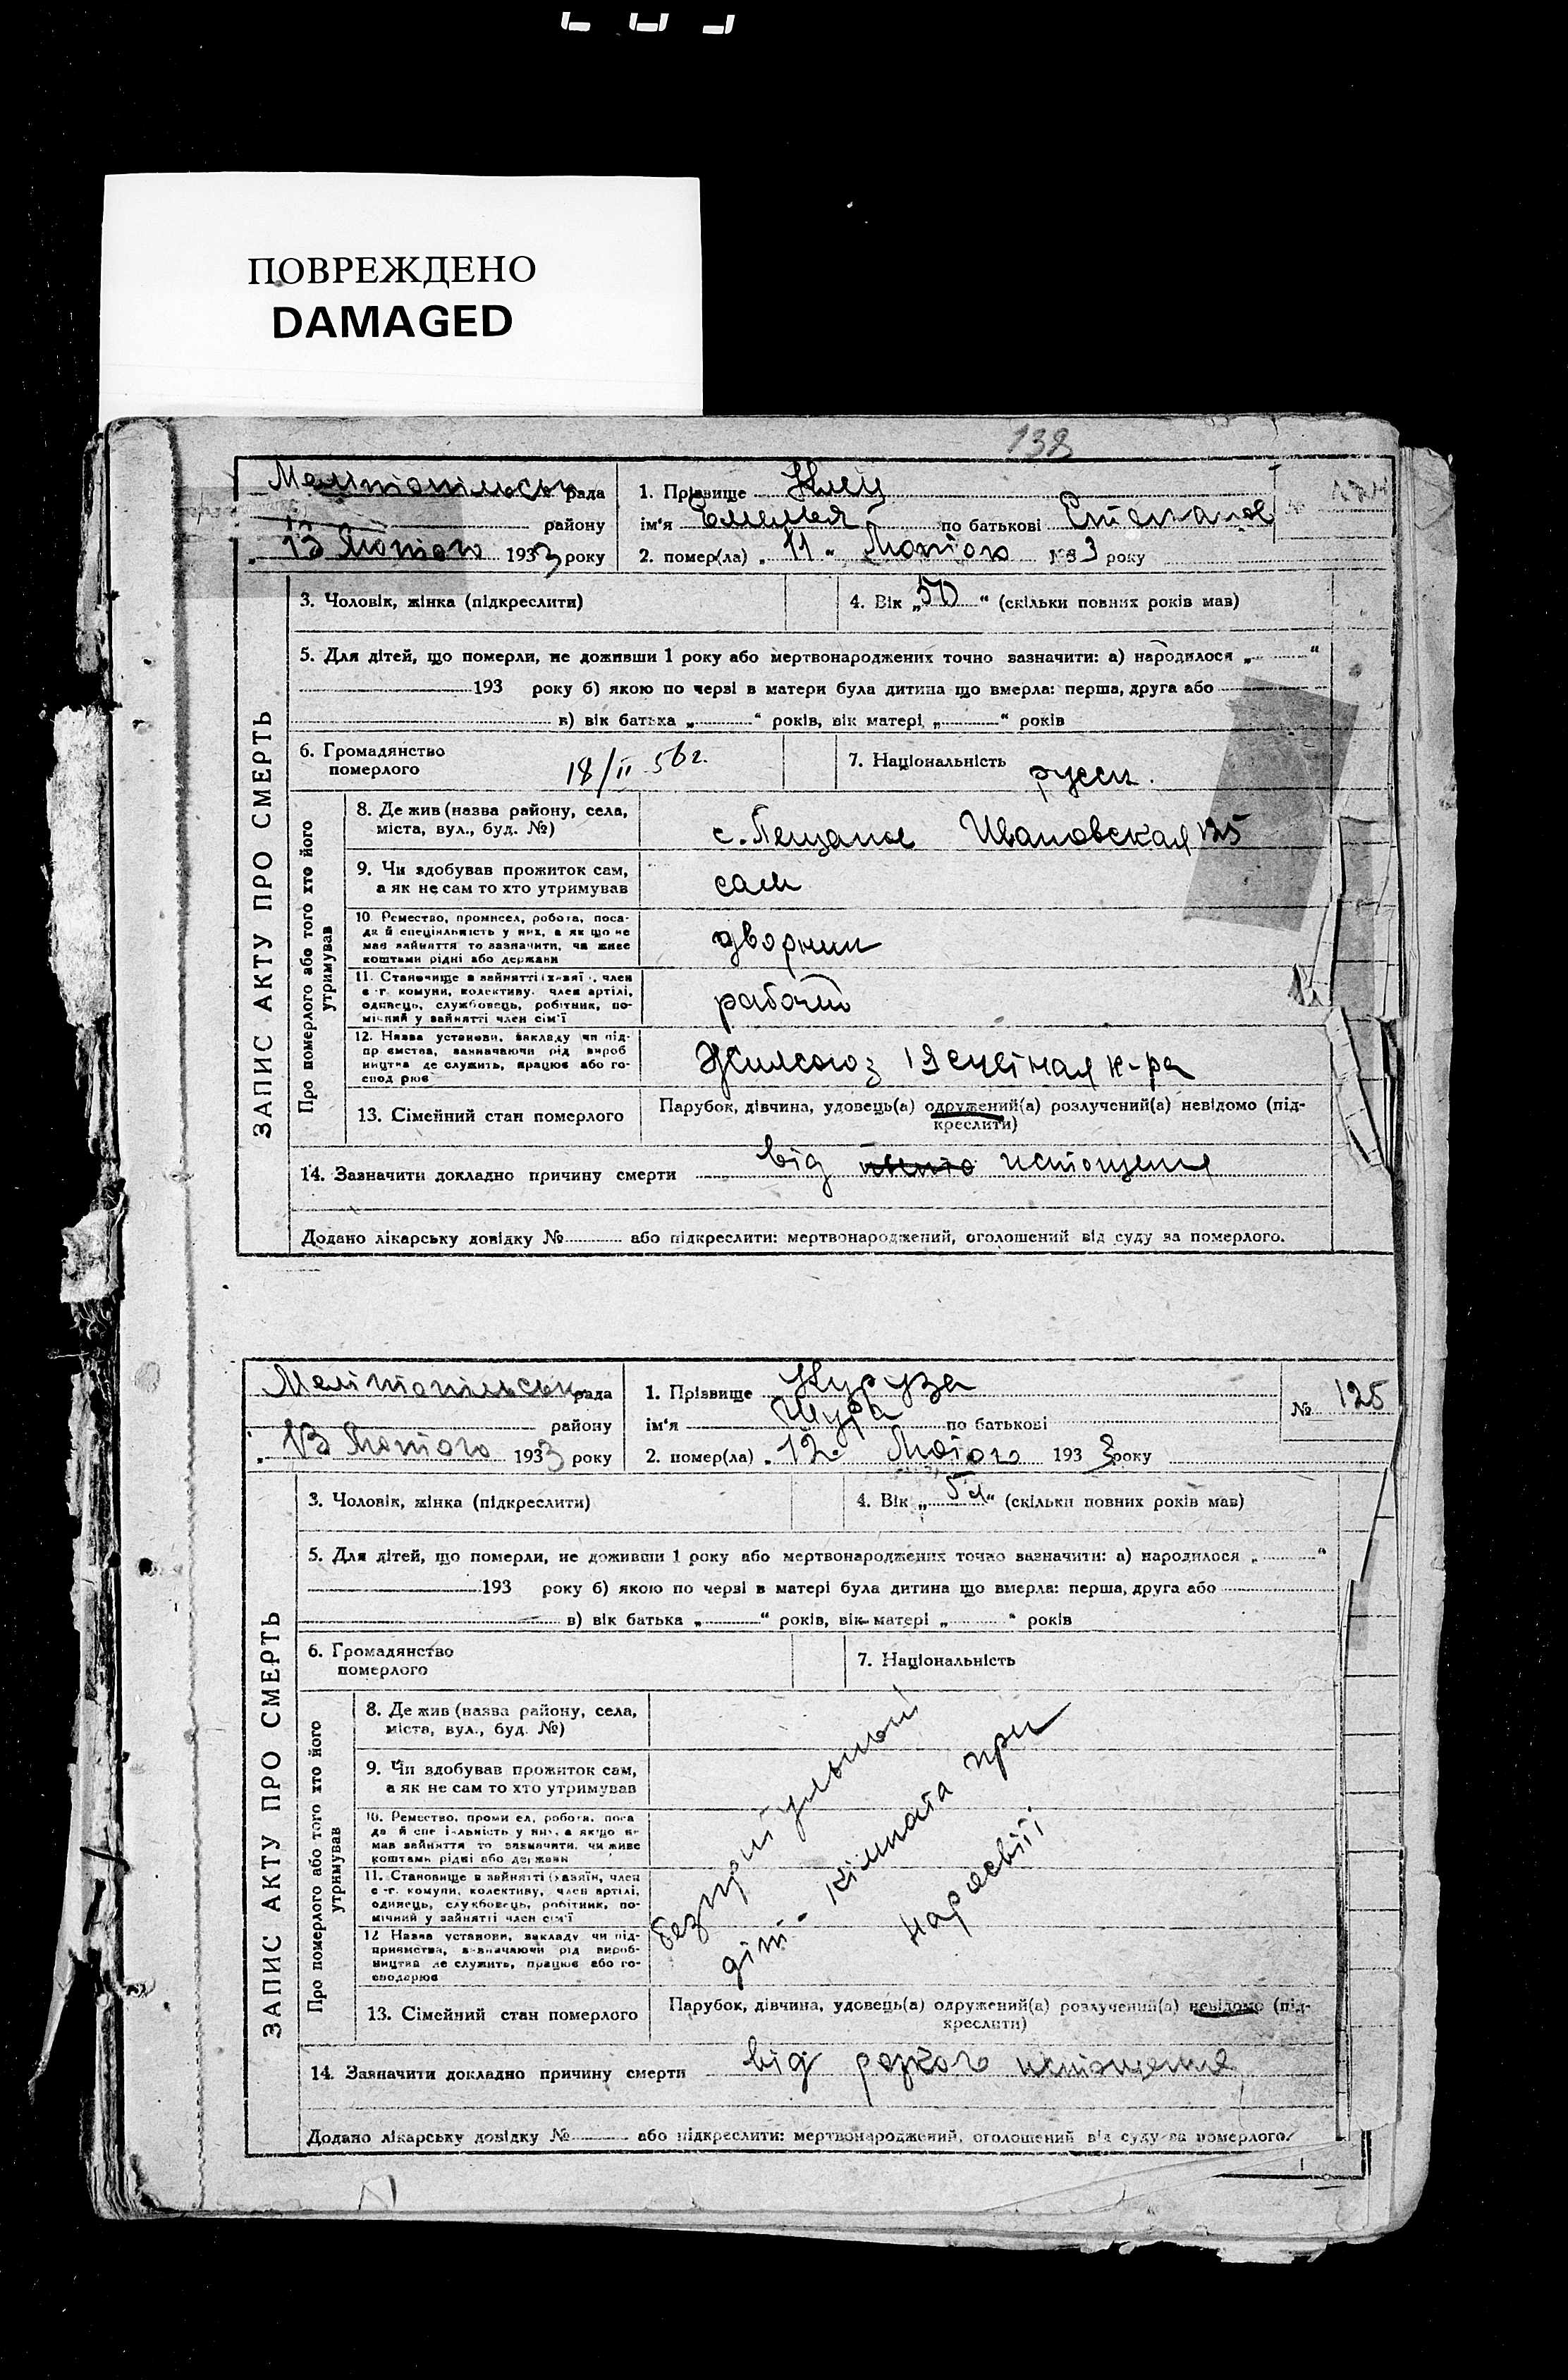 ПОВРЕЖДЕНО
DAMAGED
138
Мелітопільськ рада
1. Прізвище Клец
району
ім'я Емельян по батькові Степанов
№ 124
13 Лютого 1933 року
2. помер(ла) „ 11 “ Лютого 1933 року
ЗАПИС АКТУ ПРО СМЕРТЬ
3. Чоловік, жінка (підкреслити)
4. Вік „50“ (скільки повних років мав)
5. Для дітей, що померли, не доживши 1 року або мертвонароджених точно зазначити: а) народилося „ “
193 року б) якою по черзі в матери була дитина що вмерла: перша, друга або
в) вік батька „ “ років, вік матері „ “ років
6. Громадянство
померлого
18/II 56 г.
7. Національність русск.
Про померлого або того хто його
утримував
8. Де жив (назва району, села,
міста, вул., буд. №)
с. Пещаное Ивановская 125
9. Чи здобував прожиток сам,
а як не сам то хто утримував
сам
10. Ремество, промисел, робота, поса-
да й спеціяльність у них, а як що не
мав зайняття то зазначити, чи живе
коштами рідні або держави
дворник
11. Становище в зайнятті (хазяї , член
с -г. комуни, колективу, член артілі,
одинець, службовець, робітник, по-
мічний у зайнятті член сім'ї
рабочий
12. Назва установи, закладу чи під-
пр ємства, зазначаючи рід вироб
ництва де служить, працює або го-
спод рює
Жилсоюз 19 счетная к-ра
13. Сімейний стан померлого
Парубок, дівчина, удовець(а) одружений(а) розлучений(а) невідомо (під-
креслити)
14. Зазначити докладно причину смерти від истощения
Додано лікарську довідку № або підкреслити: мертвонароджений, оголошений від суду за померлого.
Мелітопільськ рада
1. Прізвище Куруза
району
ім'я Шура по батькові
№ 125
13 Лютого 1933 року
2. помер(ла) „ 12 Лютого 1933 року
ЗАПИС АКТУ ПРО СМЕРТЬ
3. Чоловік, жінка (підкреслити)
4. Вік „ 5 л “ (скільки повних років мав)
5. Для дітей, що померли, не доживши 1 року або мертвонароджених точно зазначити: а) народилося „ “
193 року б) якою по черзі в матері була дитина що вмерла: перша, друга або
в) вік батька „ “ років, вік матері „ “ років
6. Громадянство
померлого
7. Національність
Про померлого або того хто його
утримував
8. Де жив (назва району, села,
міста, вул., буд. №)
9. Чи здобував прожиток сам,
а як не сам то хто утримував
10. Ремество, проми ел, робота, поса
да й спе іяльність у них, а якщо н
мав зайняття то зазначити, чи живе
коштами рідні або держави
11. Становище в зайнятті (хазяїн, член
с -г. комуни, колективу, член артілі,
одинець, службовець, робітник, по-
мічний у зайнятті член сім'ї
12 Назва установи, закладу чи під-
приємства, зазначаючи рід вироб-
ництва де служить, працює або го-
сподарює
безпритульний
діт- кімната при
наросвіті
13. Сімейний стан померлого
Парубок, дівчина, удовець(а) одружений(а) розлучений(а) невідомо (під-
креслити)
14. Зазначити докладно причину смерти від резкого истощения
Додано лікарську довідку № або підкреслити: мертвонароджений, оголошений від суду за померлого.